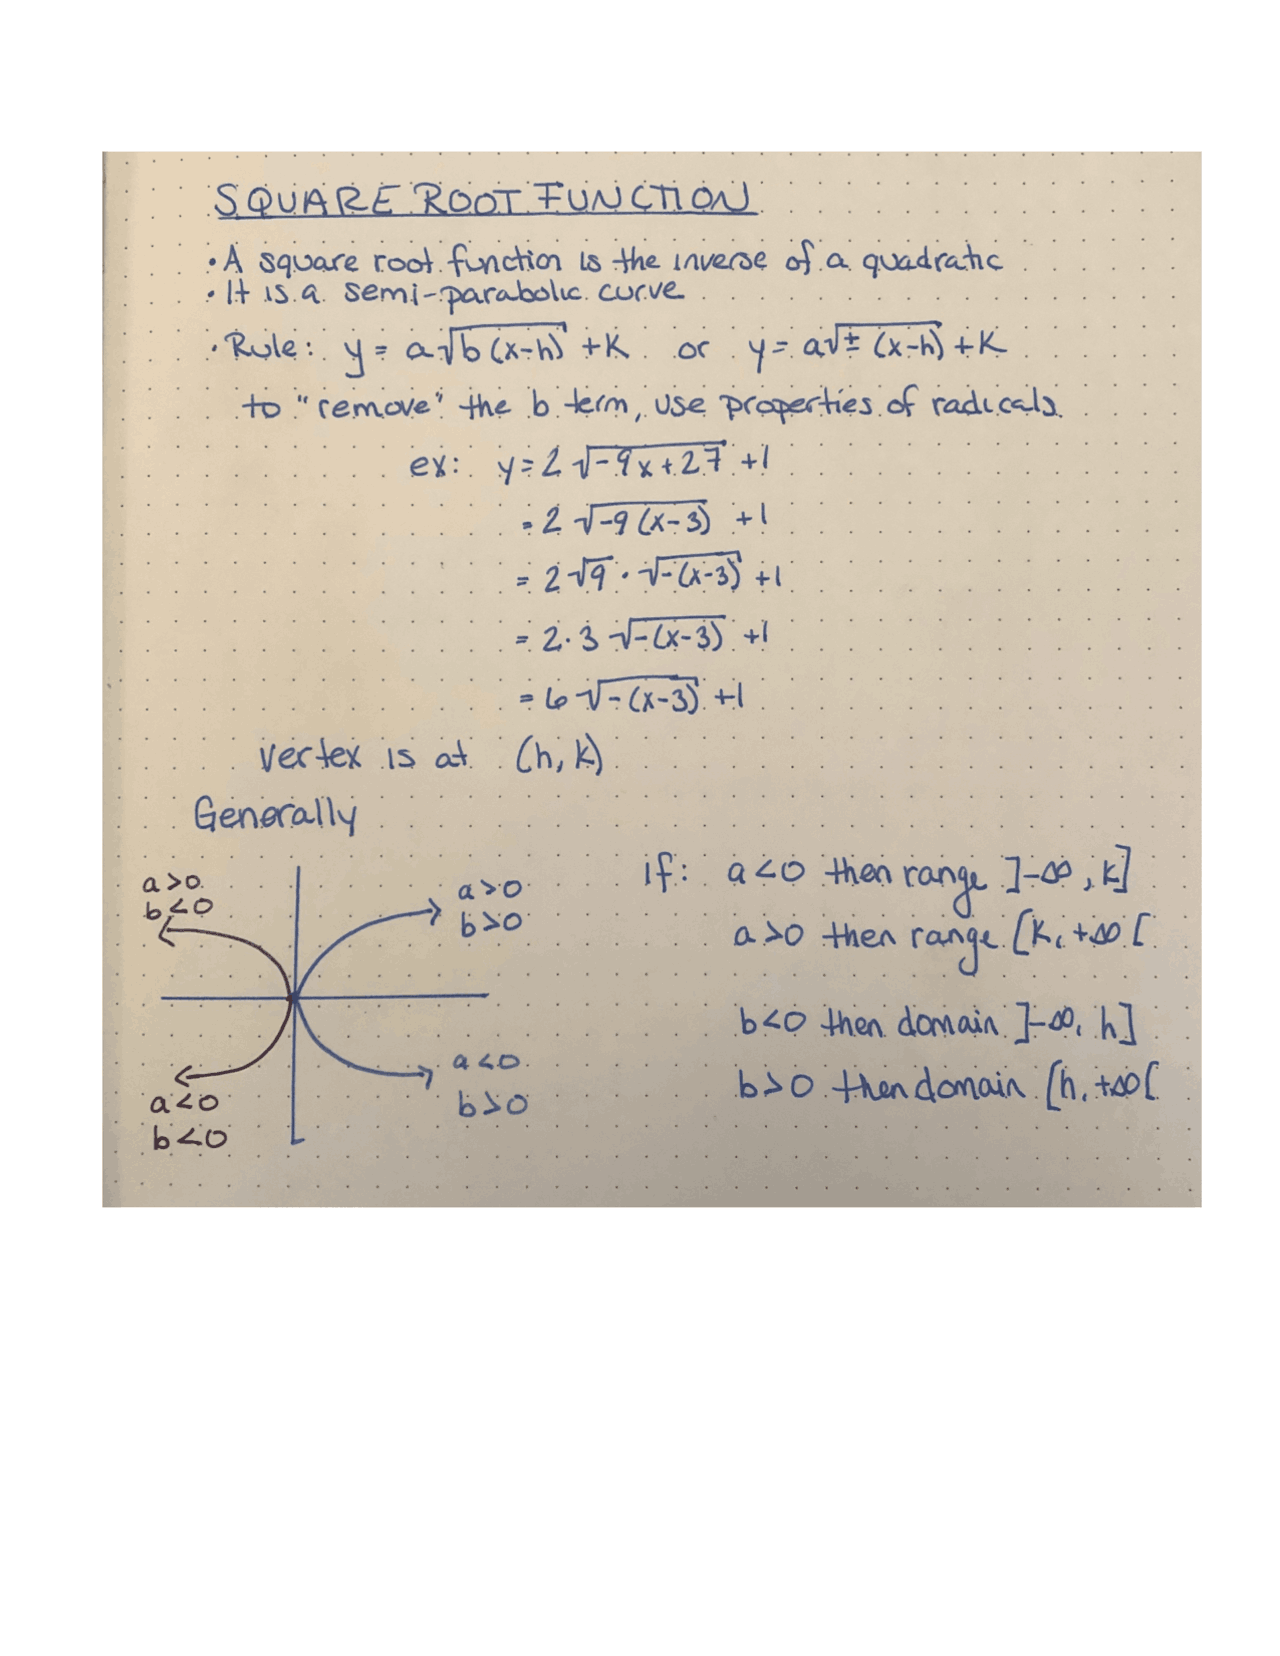 SQUARE ROOT FUNCTION
• A square root function is the inverse of a quadratic
• It is a semi-parabolic curve
• Rule: y = a√b(x-h) + K or y = a√±(x-h) + K
to "remove" the b term, use properties of radicals
ex: y = 2√-9x+27 +1
= 2√-9(x-3) +1
= 2√9 · √-(x-3) +1
= 2·3√-(x-3) +1
= 6√-(x-3) +1
vertex is at (h, k)
Generally
a>0
b<0
a>0
b>0
a<0
b>0
a<0
b<0
if: a<0 then range ]-∞, k]
a>0 then range [k, +∞[
b<0 then domain ]-∞, h]
b>0 then domain [h, +∞[